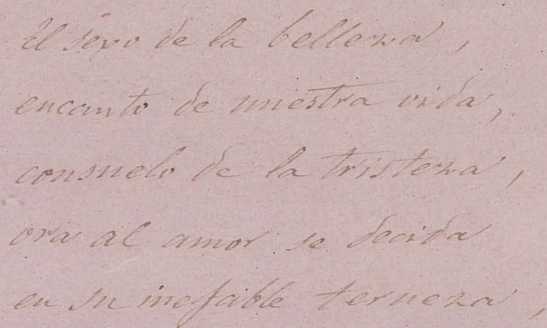 El sexo de la belleza,
encanto de nuestra vida,
consuelo de la tristeza,
ora al amor se decida
en su inefable terneza,